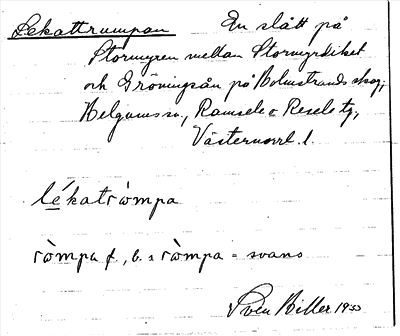 Lekattrumpan En slått på
Stormyren mellan Stormyrdiket
och Gröningsån på Holmstrands skog,
Helgums sn, Ramsele o Resele tg,
Västernorrl. l.
lékatròmpa
ròmpa f., b. s ròmpa = svans
Sven Hiller 1933